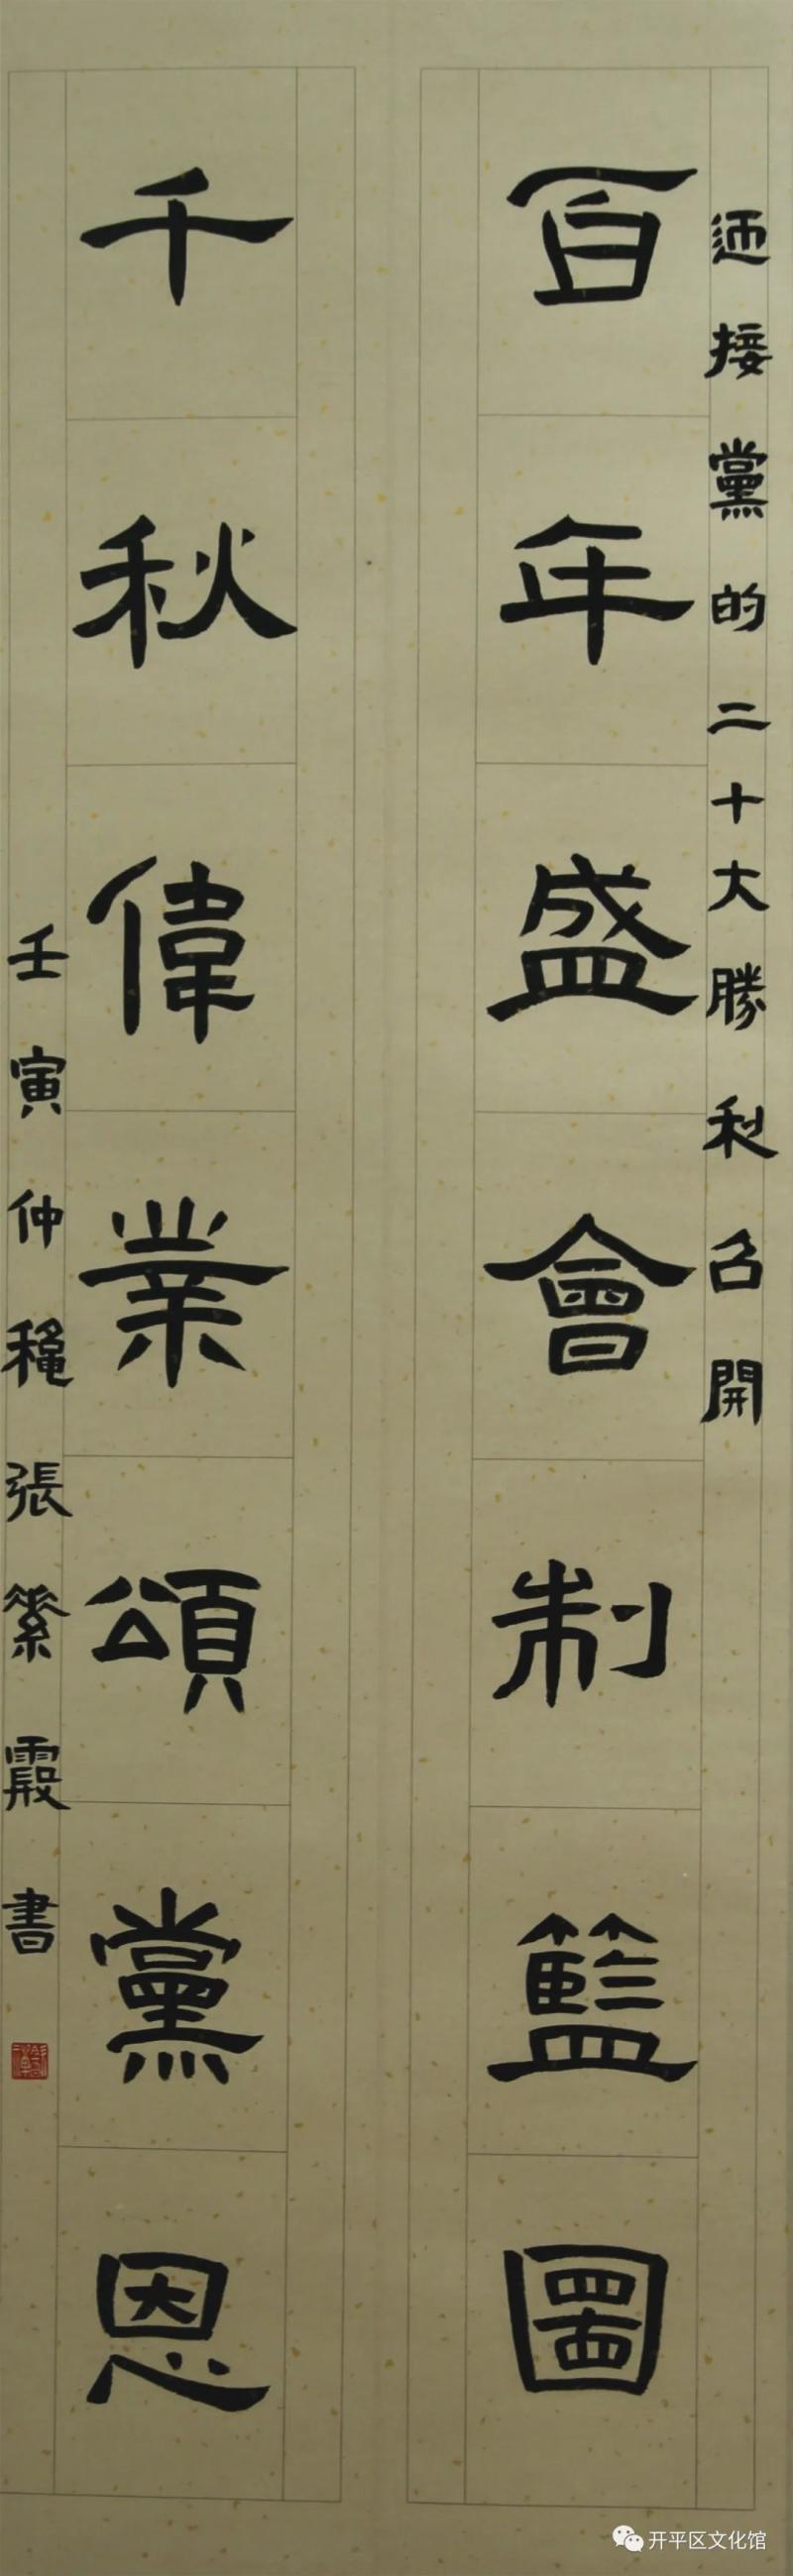 迊接黨的二十大勝利召開
百年盛會制籃圖
千秋偉業頌黨恩
壬寅仲龝張縈霞書
开平区文化馆